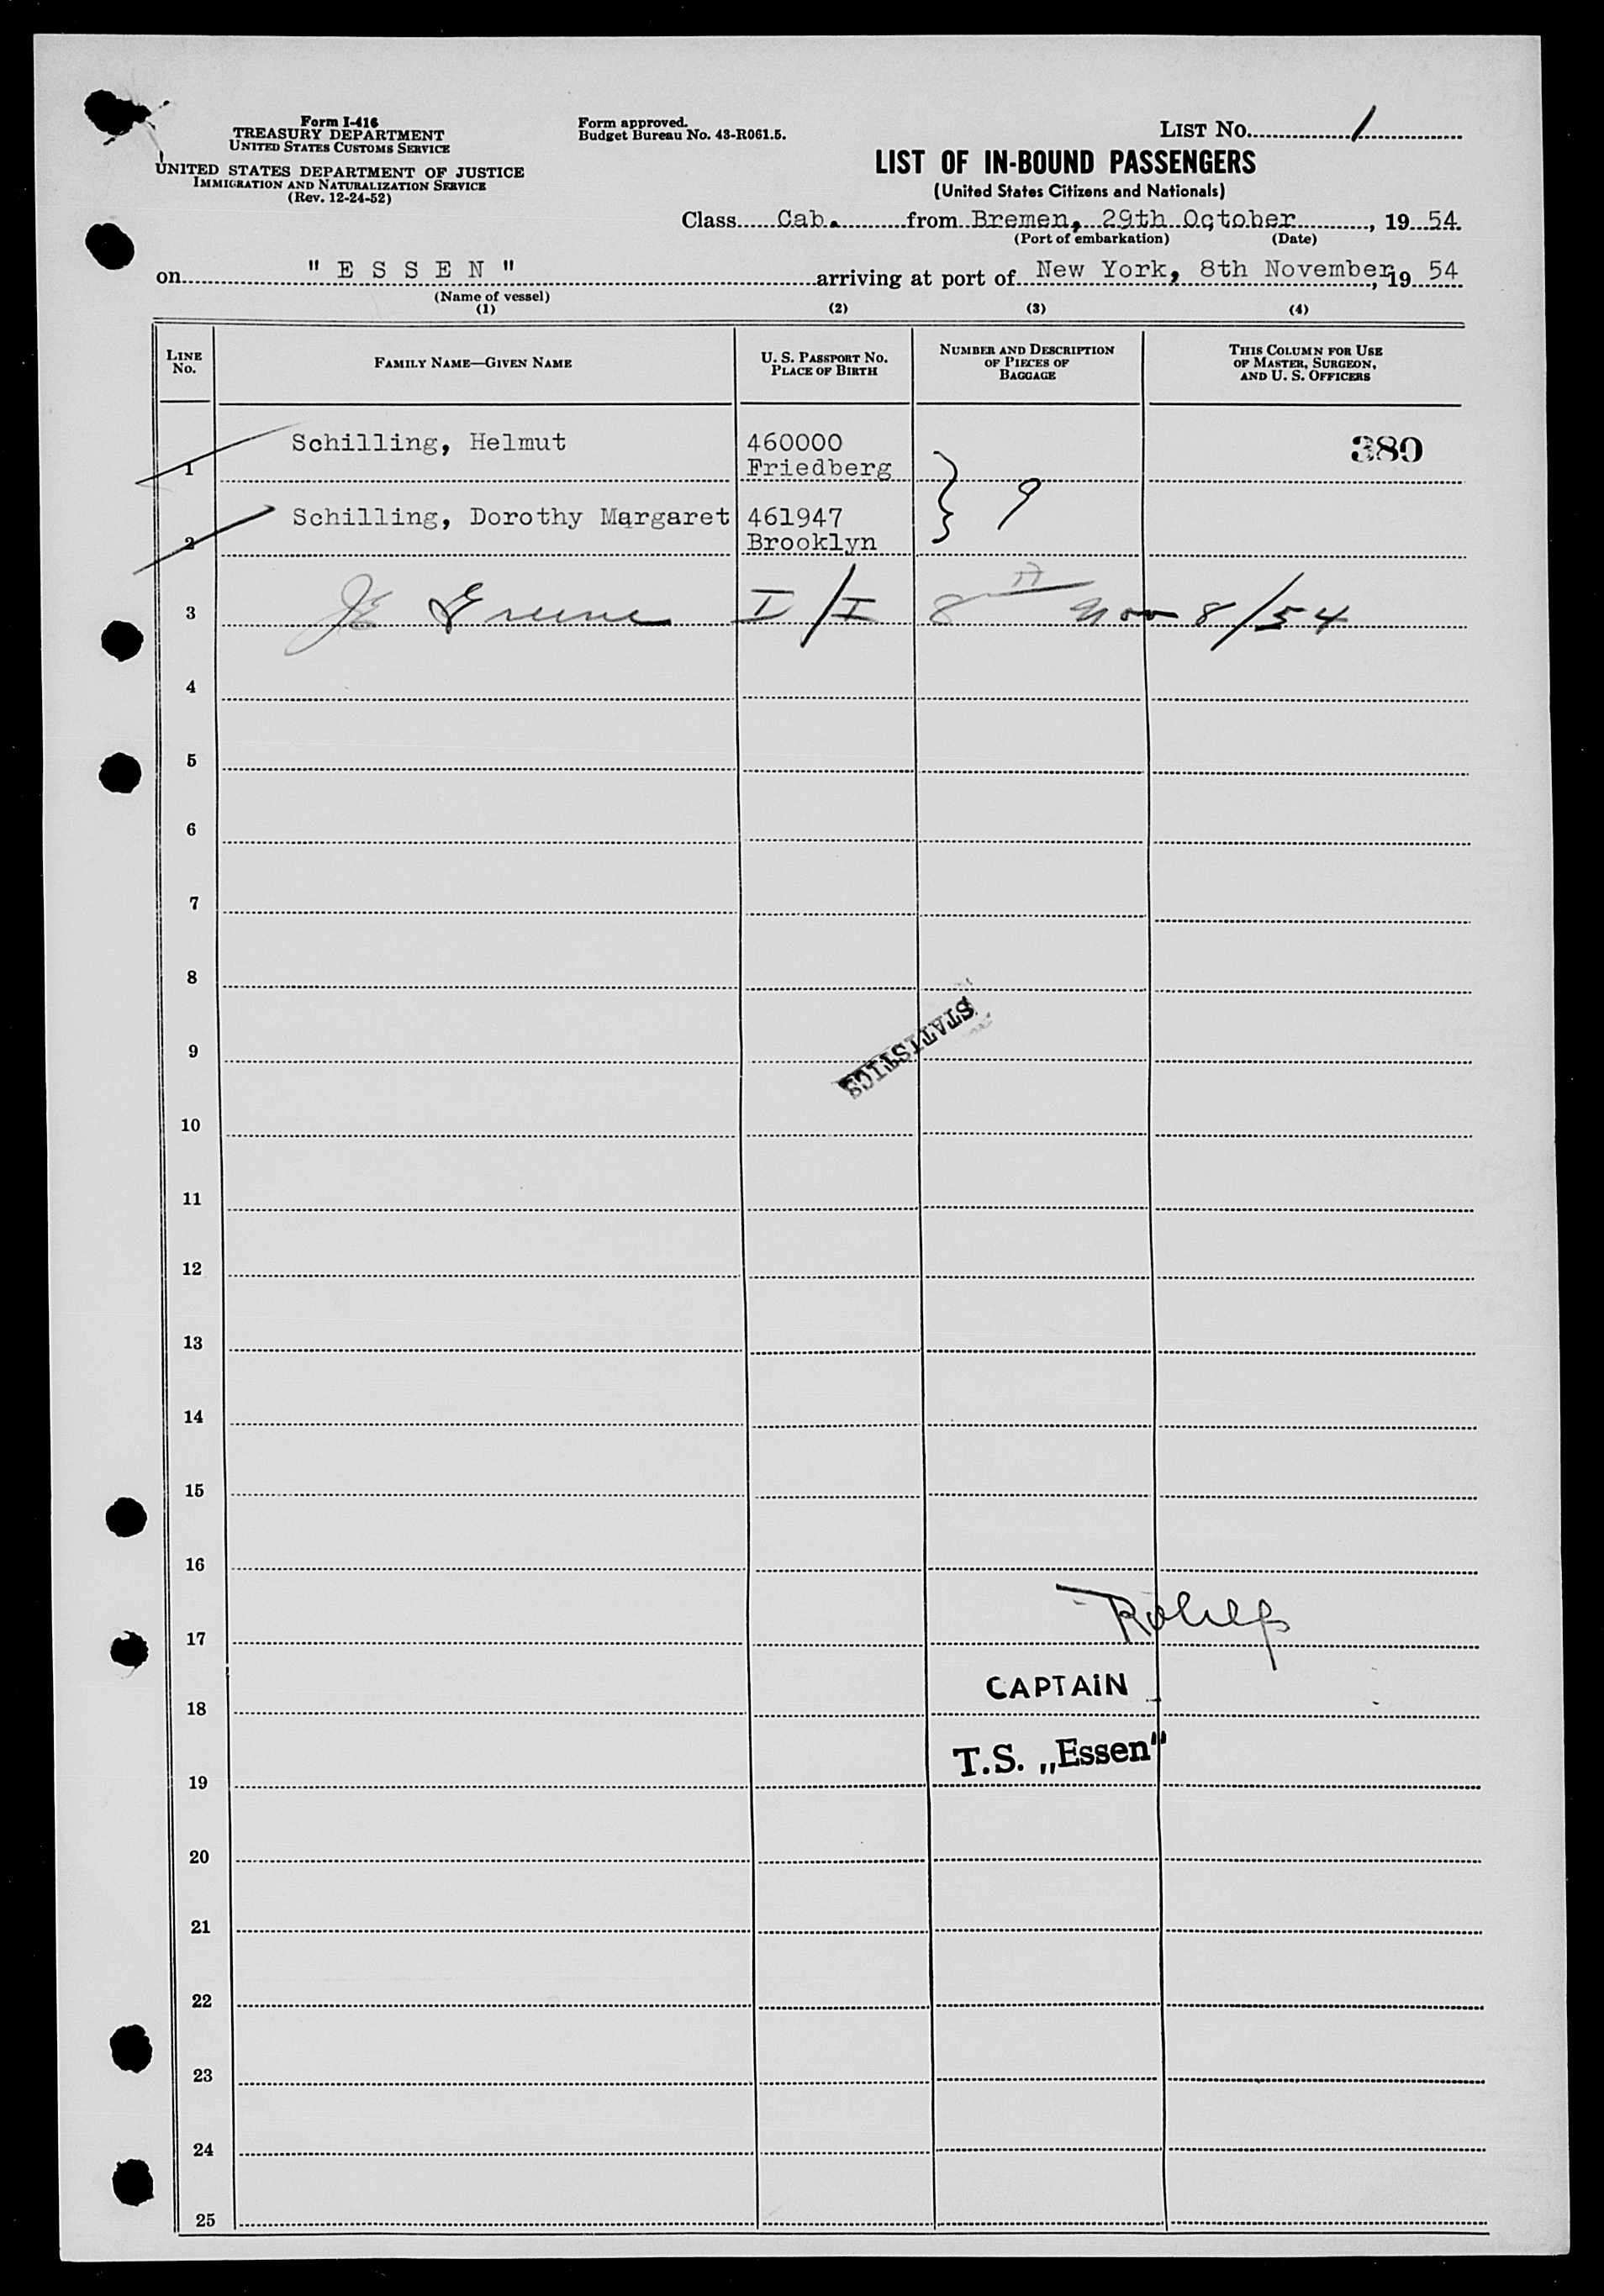 Form I-416
TREASURY DEPARTMENT
UNITED STATES CUSTOMS SERVICE
UNITED STATES DEPARTMENT OF JUSTICE
IMMIGRATION AND NATURALIZATION SERVICE
(Rev. 12-24-52)
Form approved.
Budget Bureau No. 43-R061.5.
LIST No. 1
LIST OF IN-BOUND PASSENGERS
(United States Citizens and Nationals)
Class Cab. from Bremen, 29th October, 19 54.
(Port of embarkation) (Date)
on " E S S E N " arriving at port of New York, 8th November, 19 54
(Name of vessel)
(1) (2) (3) (4)
LINE No. FAMILY NAME—GIVEN NAME U. S. PASSPORT NO. PLACE OF BIRTH NUMBER AND DESCRIPTION OF PIECES OF BAGGAGE THIS COLUMN FOR USE OF MASTER, SURGEON, AND U. S. OFFICERS
1 Schilling, Helmut 460000 380
Friedberg
9
2 Schilling, Dorothy Margaret 461947
Brooklyn
3 JE Greene I/I 8 Nov 8/54
4
5
6
7
8
STATISTICS
9
10
11
12
13
14
15
16
17
CAPTAIN
18
T.S. „Essen"
19
20
21
22
23
24
25